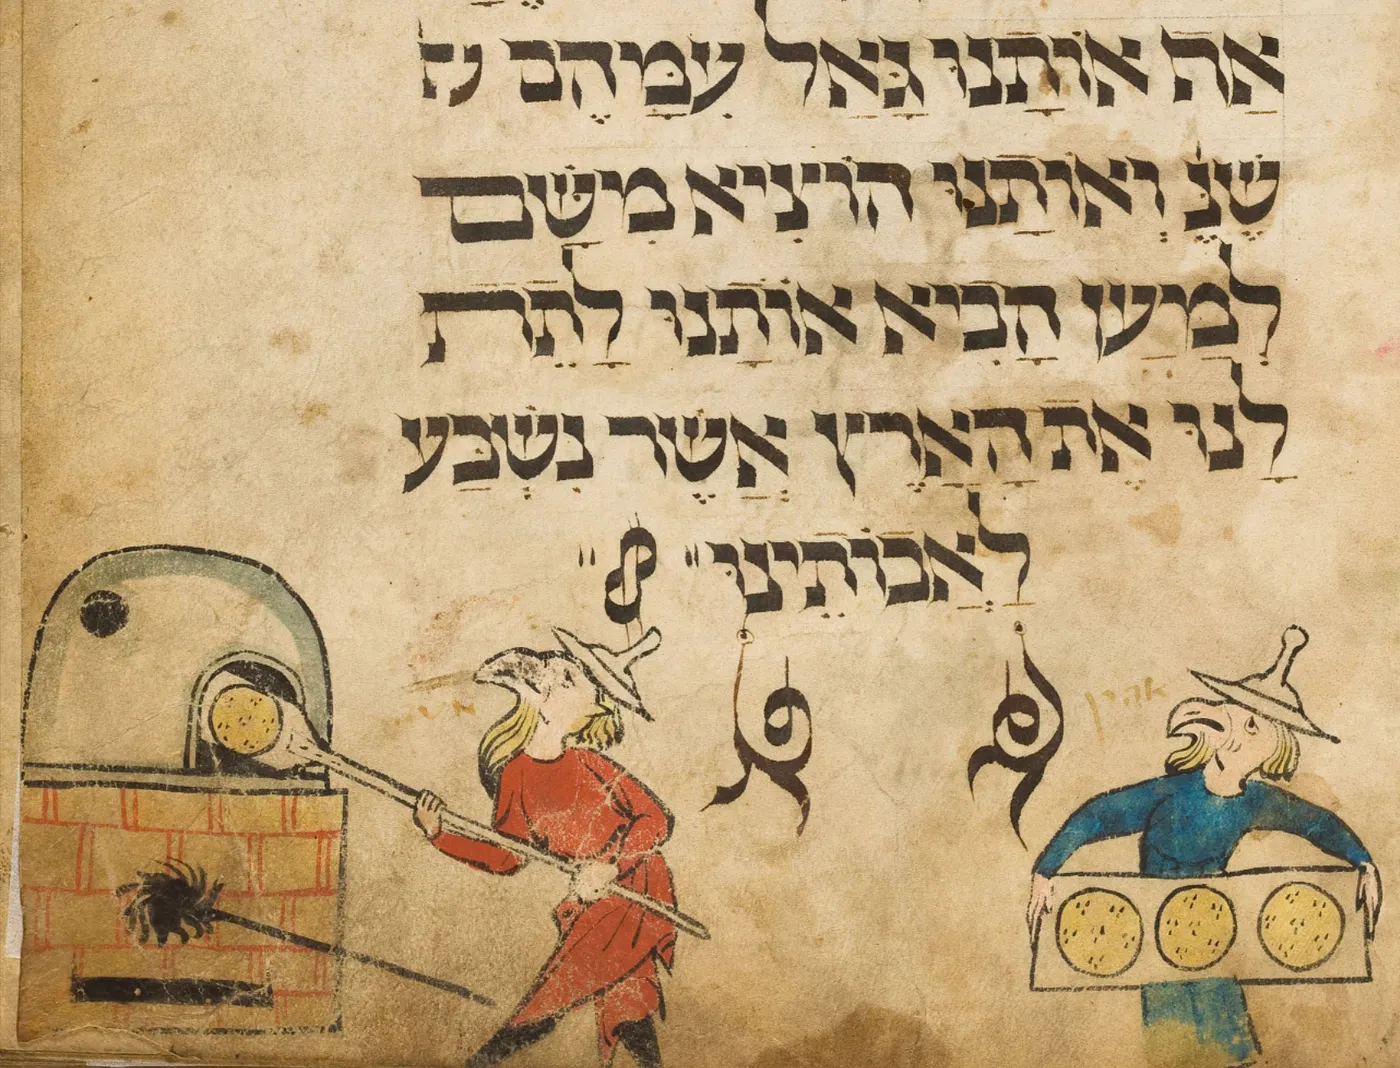 את אותנו גָּאַל עִמָּהֶם
שֶׁנֶּ וְאוֹתָנוּ הוֹצִיא מִשָּׁם
לְמַעַן הָבִיא אוֹתָנוּ לָתֵת
לָנוּ אֶת הָאָרֶץ אֲשֶׁר נִשְׁבַּע
לַאֲבוֹתֵינוּ